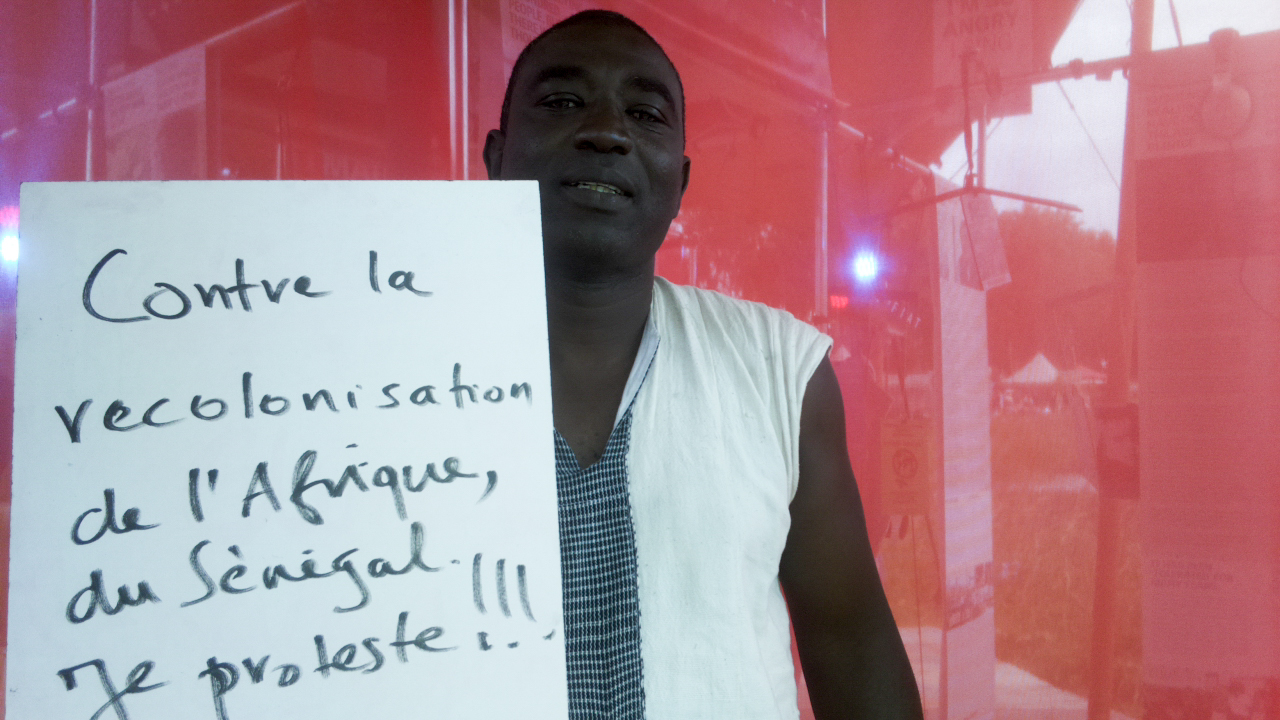 Contre la
recolonisation
de l'Afrique,
du Sénégal.
Je proteste!!!
ANGRY